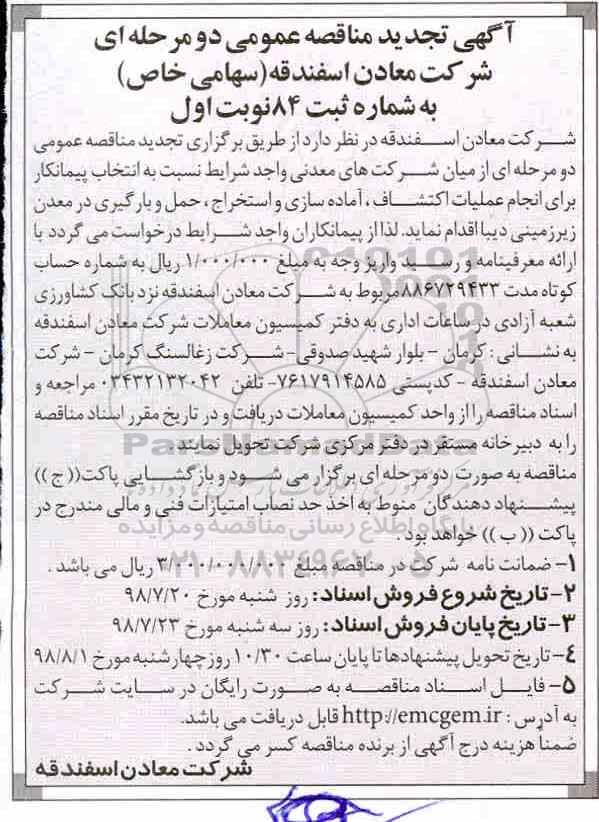 آگهی تجدید مناقصه عمومی دو مرحله ای
شرکت معادن اسفندقه (سهامی خاص)
به شماره ثبت ۸۴ نوبت اول
شرکت معادن اسفندقه در نظر دارد از طریق برگزاری تجدید مناقصه عمومی
دو مرحله ای از میان شرکت های معدنی واجد شرایط نسبت به انتخاب پیمانکار
برای انجام عملیات اکتشاف، آماده سازی و استخراج، حمل و بارگیری در معدن
زیرزمینی دیبا اقدام نماید. لذا از پیمانکاران واجد شرایط درخواست می گردد با
ارائه معرفینامه و رسید واریز وجه به مبلغ ۱/۰۰۰/۰۰۰ ریال به شماره حساب
کوتاه مدت ۸۸۶۷۲۹۴۳۳ مربوط به شرکت معادن اسفندقه نزد بانک کشاورزی
شعبه آزادی در ساعات اداری به دفتر کمیسیون معاملات شرکت معادن اسفندقه
به نشانی: کرمان - بلوار شهید صدوقی- شرکت زغالسنگ کرمان - شرکت
معادن اسفندقه - کدپستی ۷۶۱۷۹۱۴۵۸۵- تلفن ۰۳۴۳۲۱۳۲۰۴۲ مراجعه و
اسناد مناقصه را از واحد کمیسیون معاملات دریافت و در تاریخ مقرر اسناد مناقصه
را به دبیرخانه مستقر در دفتر مرکزی شرکت تحویل نمایند.
مناقصه به صورت دو مرحله ای برگزار می شود و بازگشایی پاکت(( ج ))
پیشنهاد دهندگان منوط به اخذ حد نصاب امتیازات فنی و مالی مندرج در
پاکت (( ب )) خواهد بود.
۱- ضمانت نامه شرکت در مناقصه مبلغ ۳/۰۰۰/۰۰۰/۰۰۰ ریال می باشد.
۲- تاریخ شروع فروش اسناد: روز شنبه مورخ ۹۸/۷/۲۰
۳- تاریخ پایان فروش اسناد: روز سه شنبه مورخ ۹۸/۷/۲۳
۴- تاریخ تحویل پیشنهادها تا پایان ساعت ۱۰/۳۰ روز چهارشنبه مورخ ۹۸/۸/۱
۵- فایل اسناد مناقصه به صورت رایگان در سایت شرکت
به آدرس: http://emcgem.ir قابل دریافت می باشد.
ضمناً هزینه درج آگهی از برنده مناقصه کسر می گردد.
شرکت معادن اسفندقه
ParsNamadData
پایگاه اطلاع رسانی مناقصه و مزایده
۰۲۱-۸۸۳۴۹۶۷۰-۵